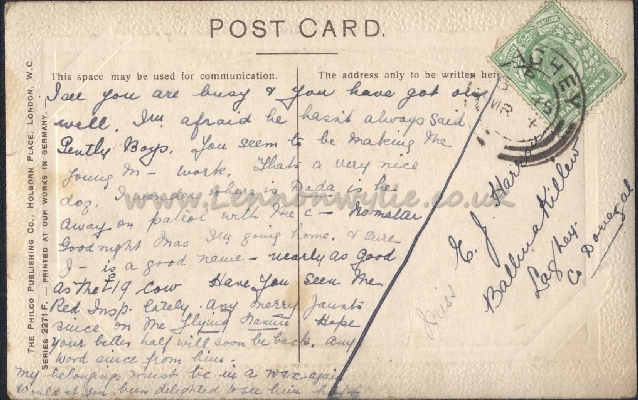 POST CARD.
This space may be used for communication.
The address only to be written here
THE PHILCO PUBLISHING CO., HOLBORN PLACE, LONDON, W.C.
SERIES 2271 F. — PRINTED AT OUR WORKS IN GERMANY.
I see you are busy & you have got on
well. I'm afraid he hasn't always said
Gently Boys. You seem to be making the
young m— work. That's a very nice
dog. I wonder where is Dada is he
away on patrol with the c—
Good night lnas I'm going home. & sure
I — is a good name — nearly as good
as the F19 Cow Have you seen the
Red Insp. lately. Any merry jaunts
since on the flying Hope
your better half will soon be back. any
word since from him.
my belongings must be in a wax again
would at you been delighted to see him
Miss E. J.
Laghey
Co Donegal
LAGHEY
MR
www.Lennonwylie.co.uk